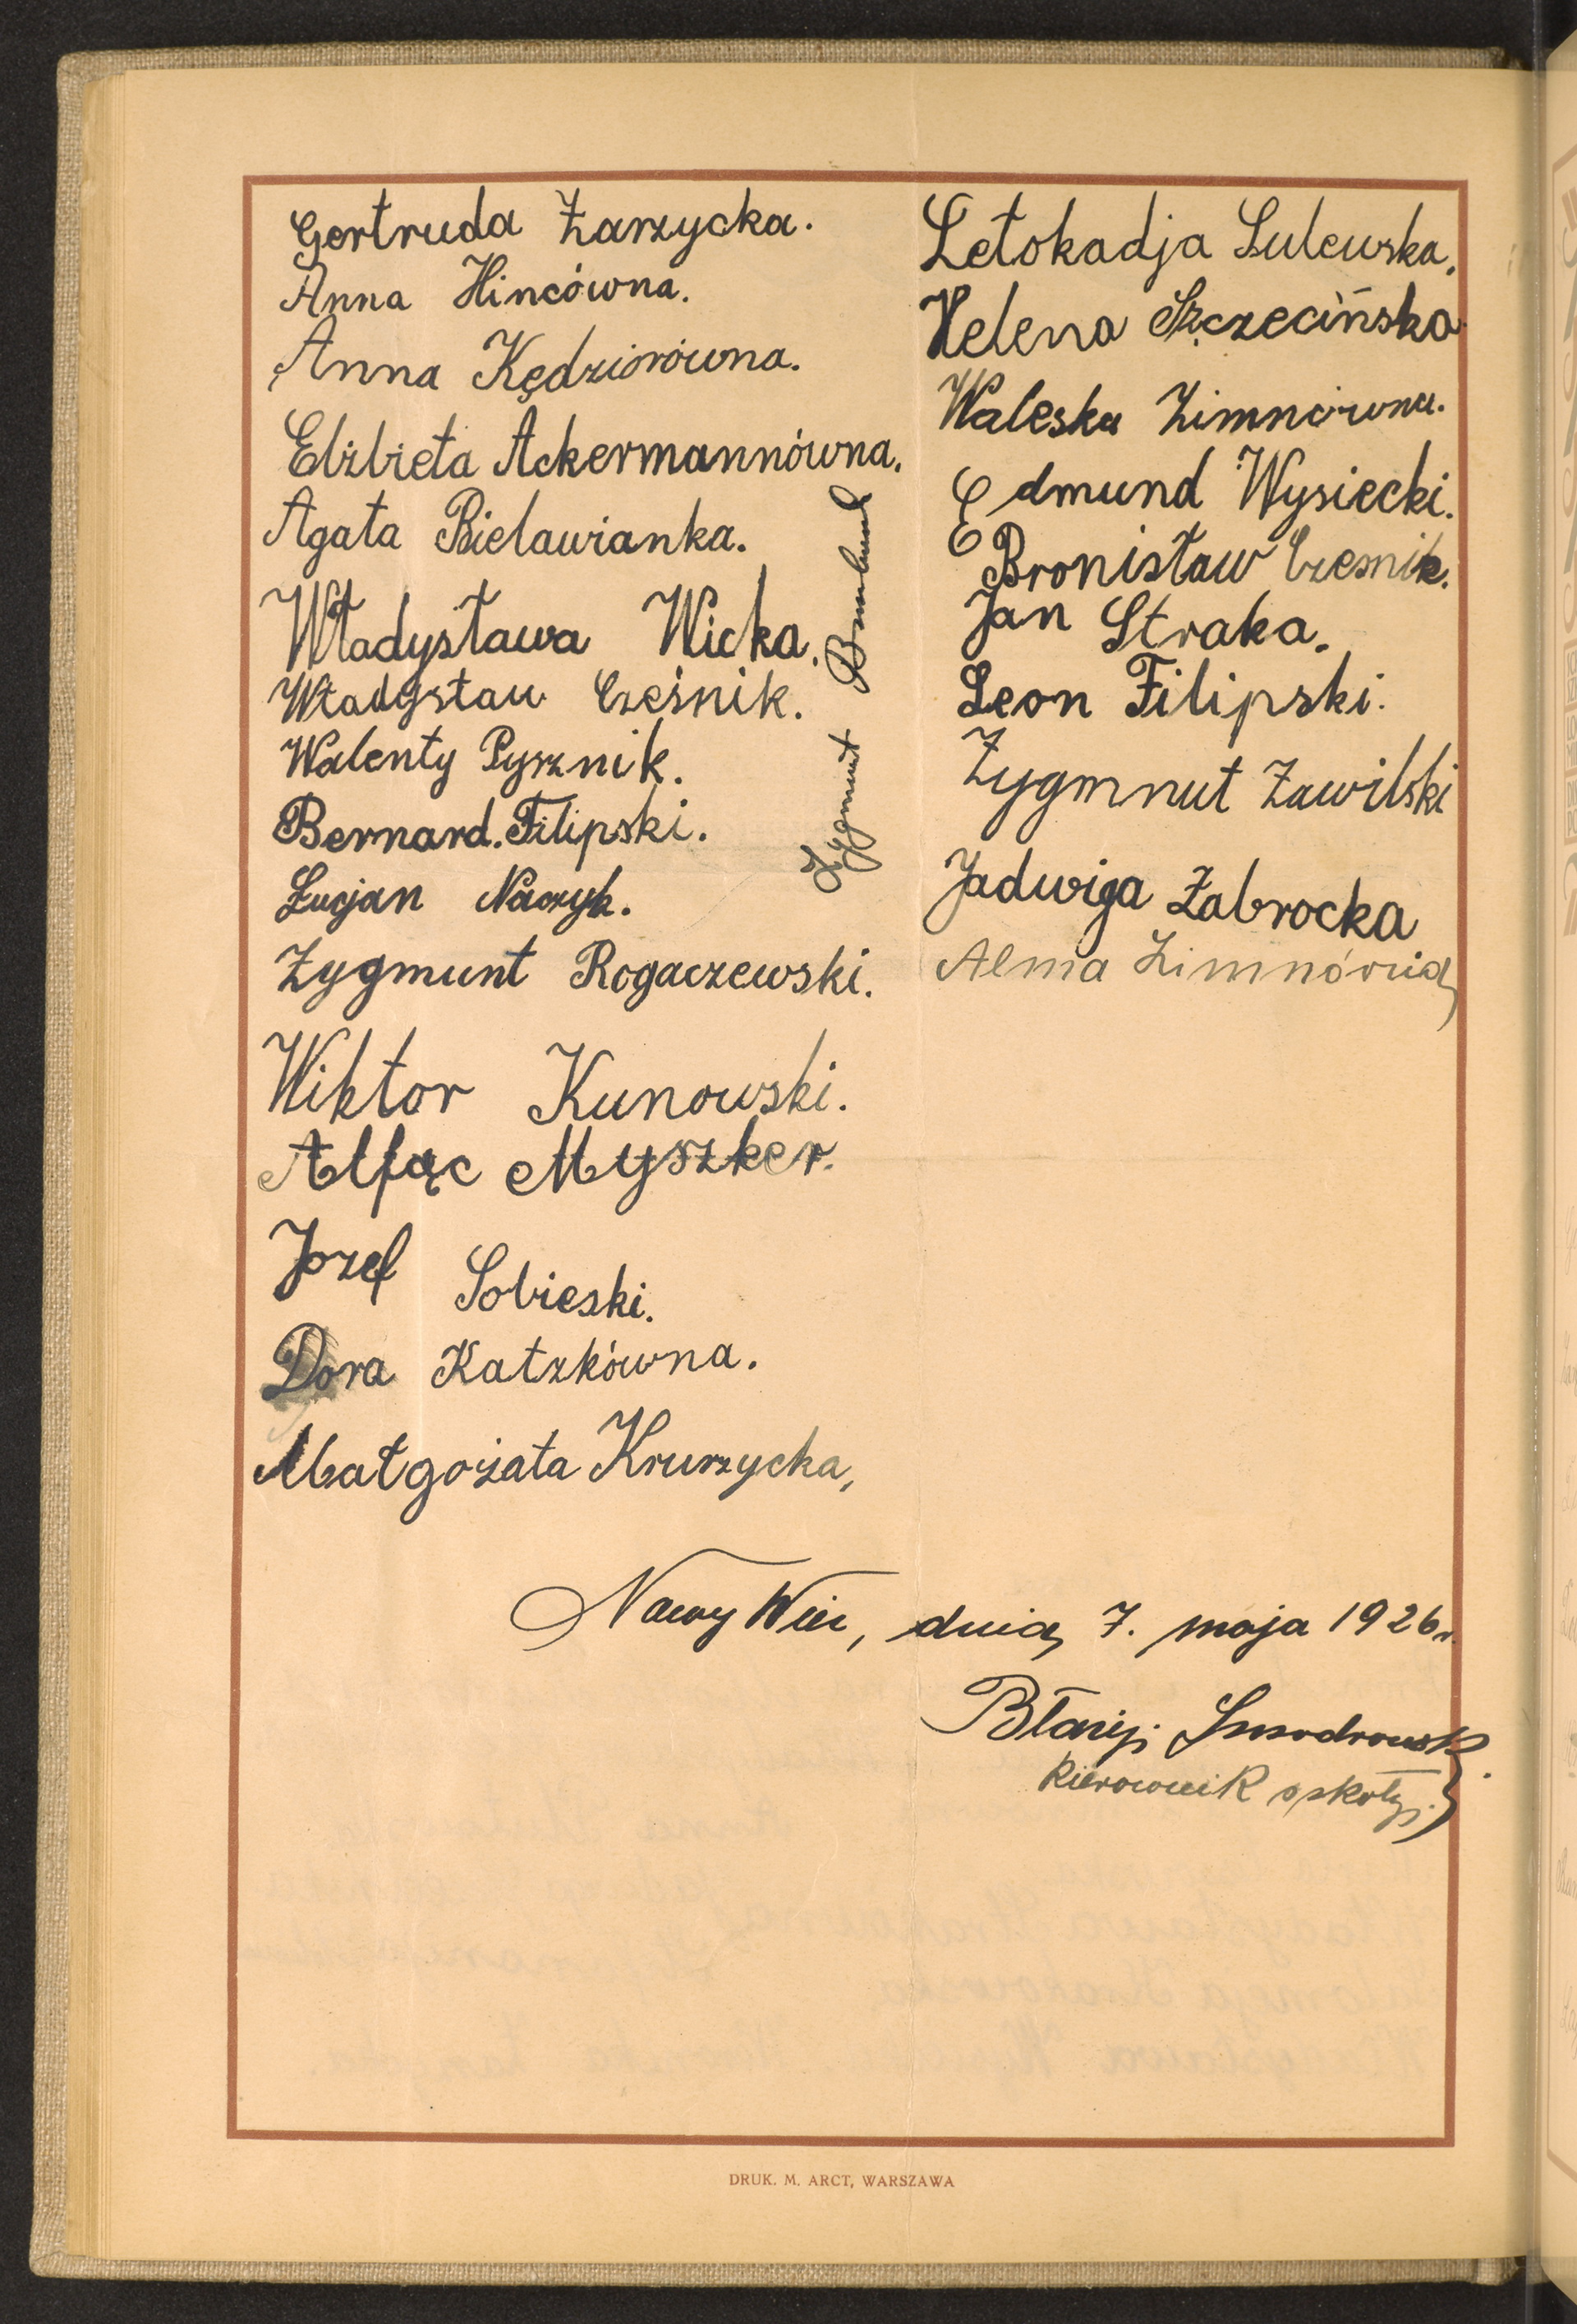 Gertruda Zarzycka.
Anna Hincówna.
Anna Kędziorówna.
Elżbieta Ackermannówna.
Agata Bielawianka.
Władysława Wicka.
Władysław Cześnik.
Walenty Pysznik.
Bernard. Filipski.
Lucjan Naczyk.
Zygmunt Rogaczewski.
Wiktor Kunowski.
Alfąc Myszker.
Jozef Sobieski.
Dora Katzkówna.
Małgożata Krurzycka,
Zygmunt
Letokadja Sulewska.
Helena Szczecińska
Waleska Zimnówna.
Edmund Wysiecki.
Bronisław Czesnik.
Jan Straka.
Leon Filipski.
Zygmnut Zawilski
Jadwiga Zabrocka
Alma Zimnówna
Nowy Wiec, dnia, 7. maja 1926r.
Błażej
Kierownik szkoły.
DRUK. M. ARCT, WARSZAWA